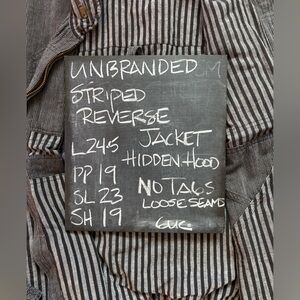 UNBRANDED
STRIPED
REVERSE
JACKET
L 24.5
HIDDEN HOOD
PP 19
NO TAGS
SL 23
LOOSE SEAMS
SH 19
GUC.